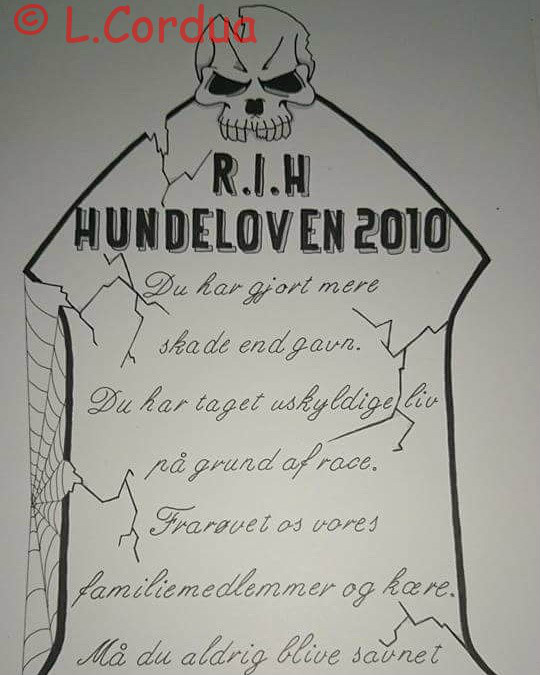 © L.Cordua
R.I.H
HUNDELOVEN 2010
Du har gjort mere
skade end gavn.
Du har taget uskyldige liv
på grund af race.
Frarøvet os vores
familiemedlemmer og kære.
Må du aldrig blive savnet